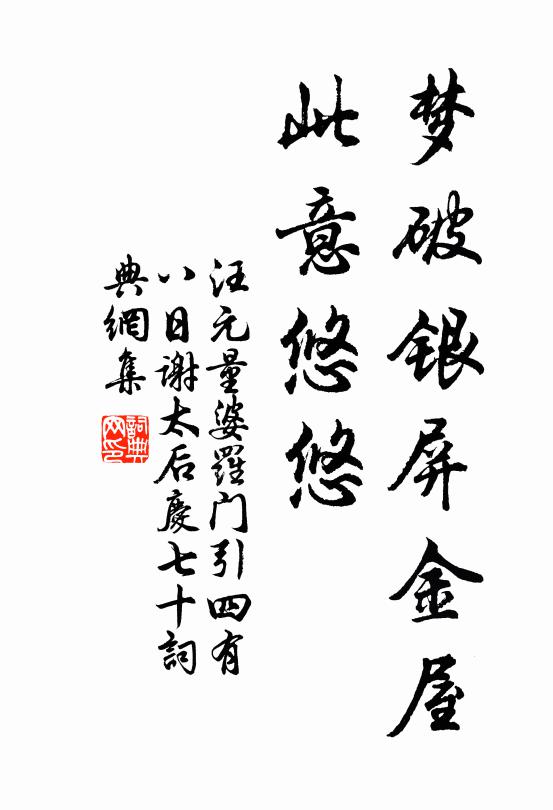 梦破银屏金屋
此意悠悠
汪元量婆羅门引四有
八日谢太后慶七十詞
典網集
詞典網印